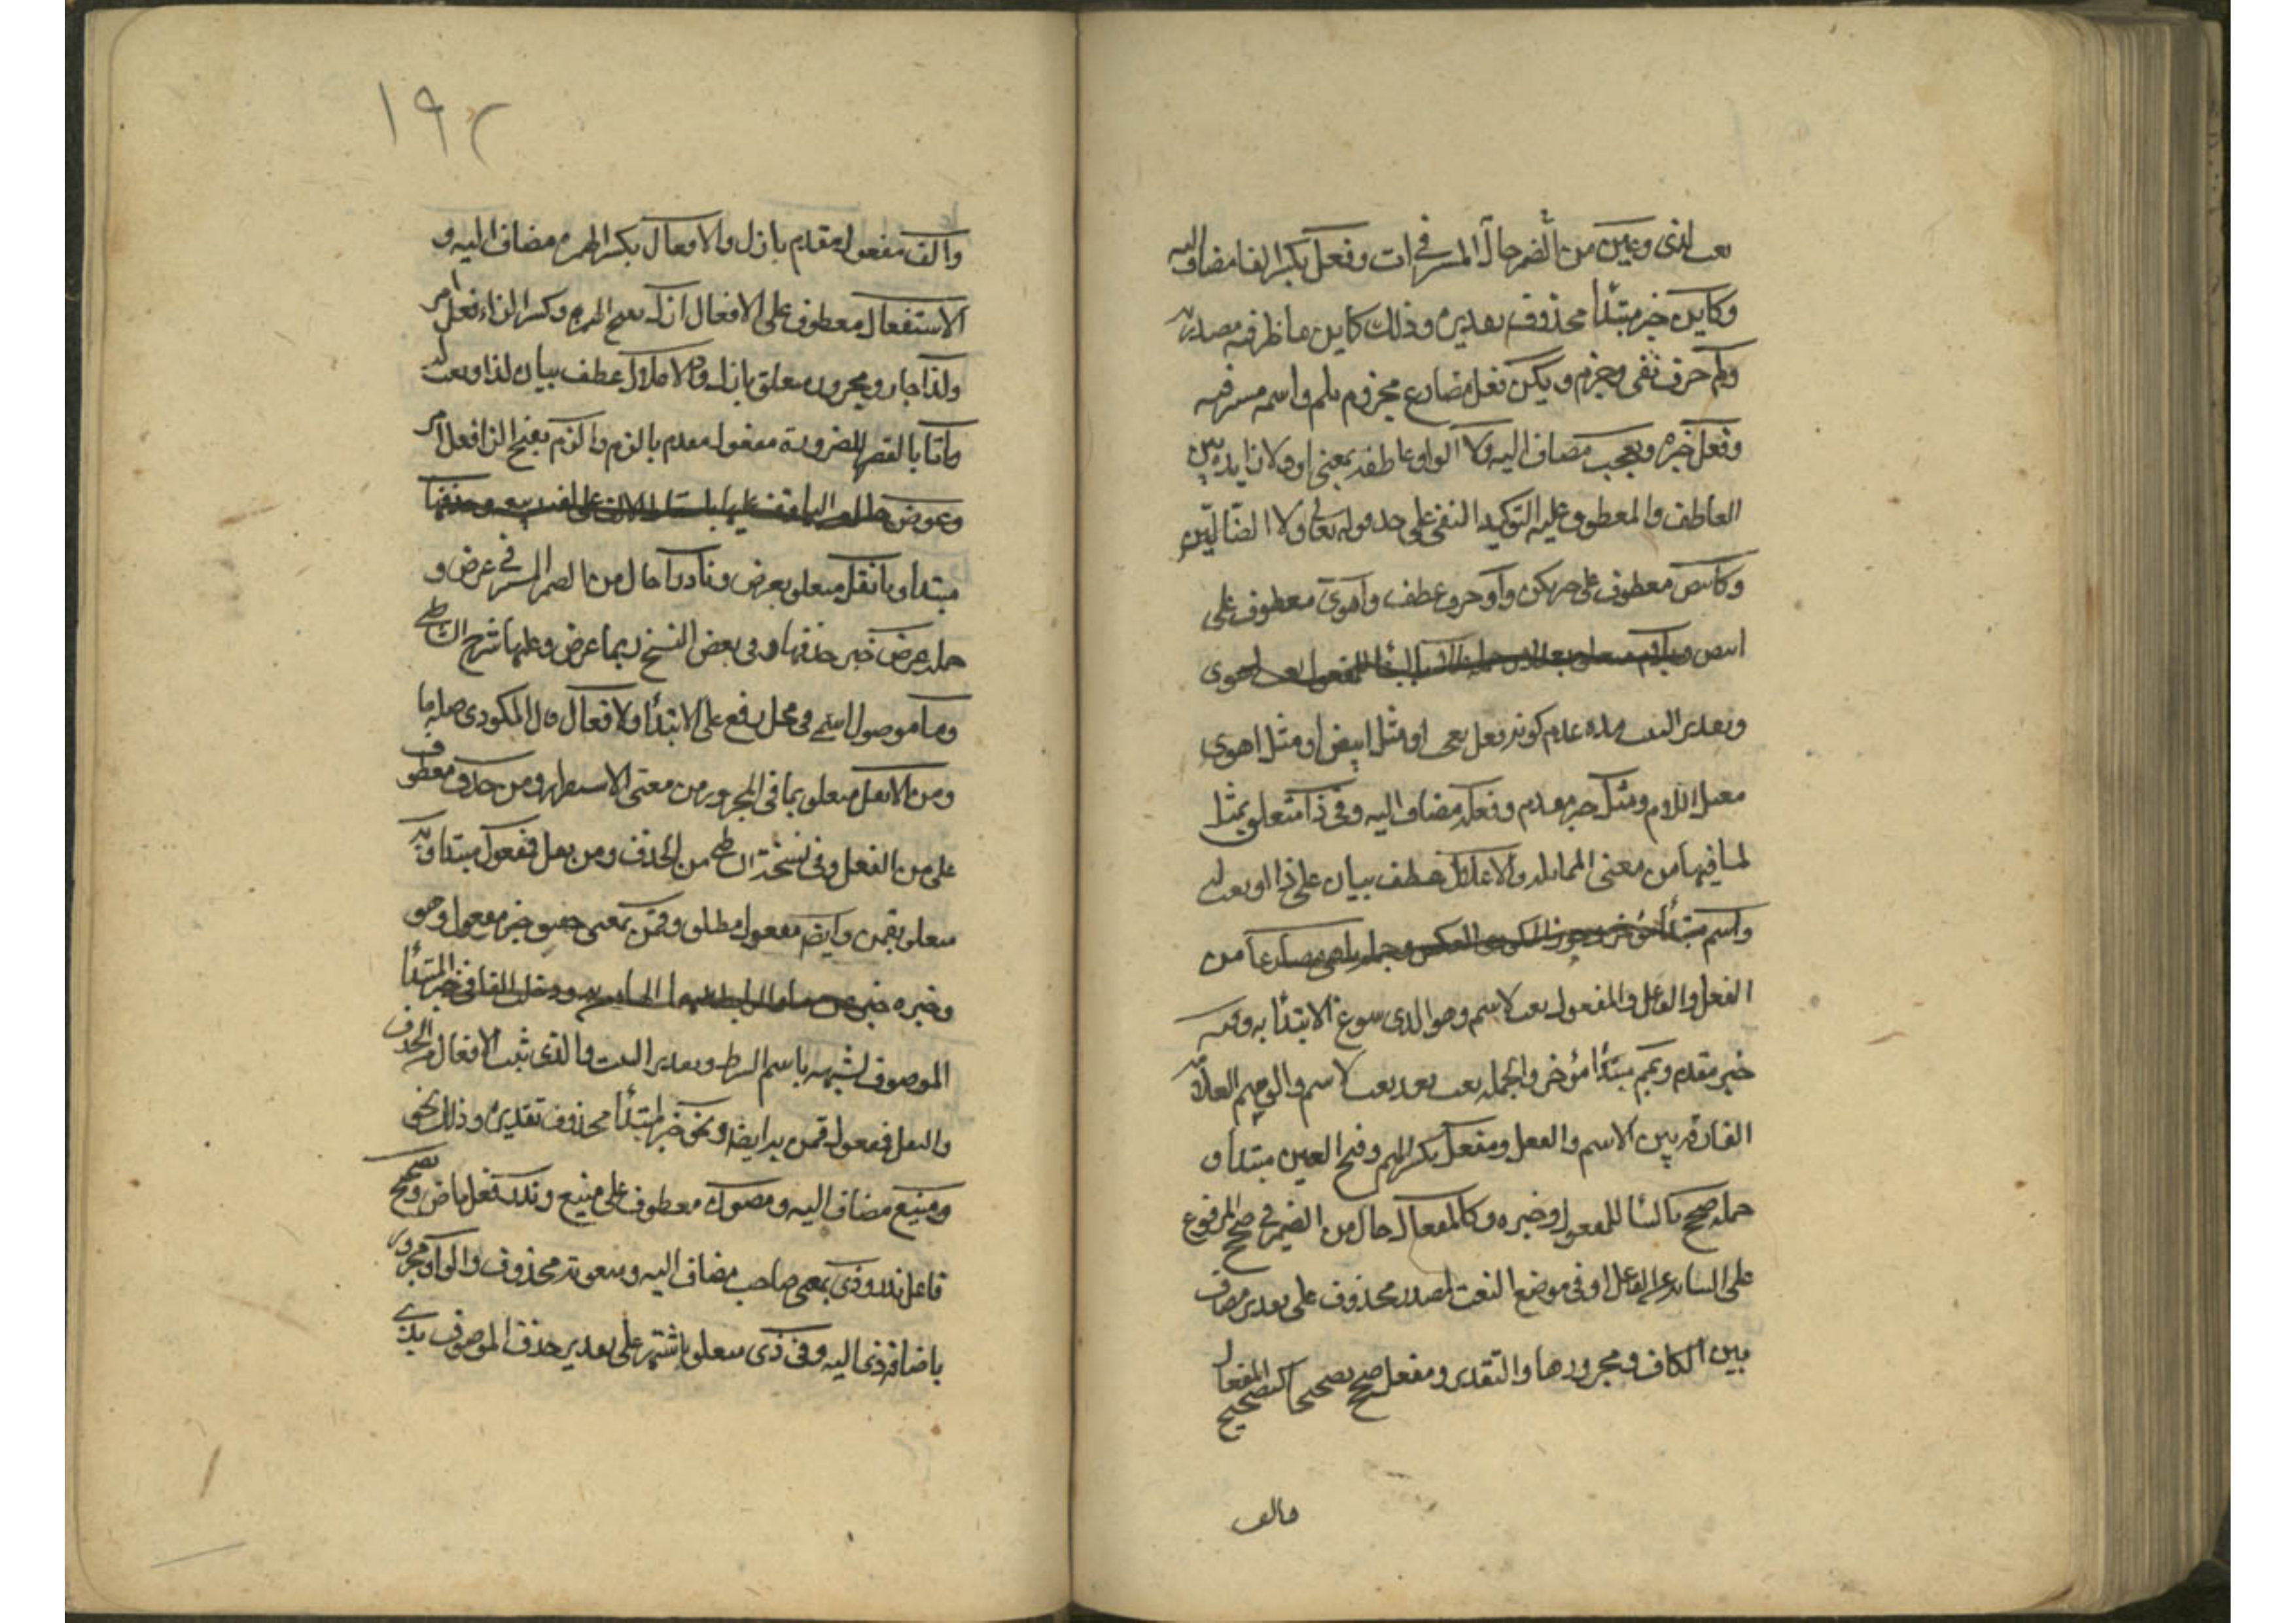 نعت لذى وعين من الضمير حال المستتر فى ات وفعل بكسر الفا مضاف اليه
وكاين خبر مبتدأ محذوف تقديره وذلك كاين ما ظرفيه مصدريه
ولم حرف نفى وجزم ويكن فعل مضارع مجزوم بلم واسمه مستتر فيه
وفعل خبره وتعجب مضاف اليه ولا الواو عاطفه بمعنى او ولا زايده بين
العاطف والمعطوف عليه لتوكيد النفى على حد قوله تعالى ولا الضالين
وكابيض معطوف على خبر يكن واو حرف عطف واهوى معطوف على
ابيض وبلام متعلق اهوى
وتقدير البيت مده عدم كونه فعل تعجب او مثل ابيض او مثل اهوى
معتل اللام ومثل خبر مقدم وفعل مضاف اليه وفى ذا متعلق بمثل
لما فيها من معنى المماثله والاعلال عطف بيان على ذا او نعت له
واسم مبتدأ مؤخر وجوز المكودى العكس وجمله من
الفعل والفاعل والمفعول نعت لاسم وهو الذى سوغ الابتدأ به وفيه
خبر مقدم ووسم مبتدأ مؤخر والجمله نعت بعد نعت لاسم والوسم العلامه
الفارقه بين الاسم والفعل ومفعل بكسر الميم وفتح العين مبتدأ و
جمله صحح بالبنا للمفعول وخبره وكالمفعال حال من الضمير فى صحح المرفوع
على النيابه عن الفاعل او فى موضع النعت لمصدر محذوف على تقدير مضاف
بين الكاف ومجرورها والتقدير ومفعل صحح تصحيحا كتصحيح المفعال
والف
١٩٢
والف مفعول مقدم بازل والافعال بكسر الهمزه مضاف اليه و
الاستفعال معطوف على الافعال ازل بفتح الهمزه وكسر الزاء فعل امر
ولذا جار ومجرور متعلق بازل والاعلال عطف بيان لذا او نعت له
والتا بالقصر للضرورة مفعول مقدم بالزم والزم بفتح الزا فعل امر
وعوض حال من التا وقف عليها باسقاط الالف على لغه ربيعه وحذفها
مبتدأ وبالنقل متعلق بعرض ونادرا حال من الضمير المستتر فى عرض و
جمله عرض خبر حذفها وفى بعض النسخ ربما عرض وعليها شرح الشاطبى
وما موصول اسمى فى محل رفع على الابتدأ ولافعال قال المكودى صله ما
ومن الانقل متعلق بما فى المجرور من معنى الاستقرار ومن حذف معطوف
على من الفعل وفى نسخة الشاطبى من الحذف ومن نقل فمفعول مبتدأ وبه
متعلق بقمن وايضا مفعول مطلق وقمن بمعنى حقيق خبر مفعول وهو
وخبره خبر عن ما والرابط بينهما الها من به ودخلت الفا فى خبر المبتدأ
الموصوف لشبهه باسم الشرط وتقدير البيت والذى ثبت لافعال من الحذف
والنقل فمفعول قمن به ايضا ونحو خبر لمبتدأ محذوف تقديره وذلك نحو
ومبيع مضاف اليه ومصون معطوف على مبيع وندر فعل ماض وتصحيح
فاعل ندر وذى بمعنى صاحب مضاف اليه ومنعوته محذوف والواو مجرور
باضافة ذى اليه وفى ذى متعلق باشتهر على تقدير حذف الموصوف بذى